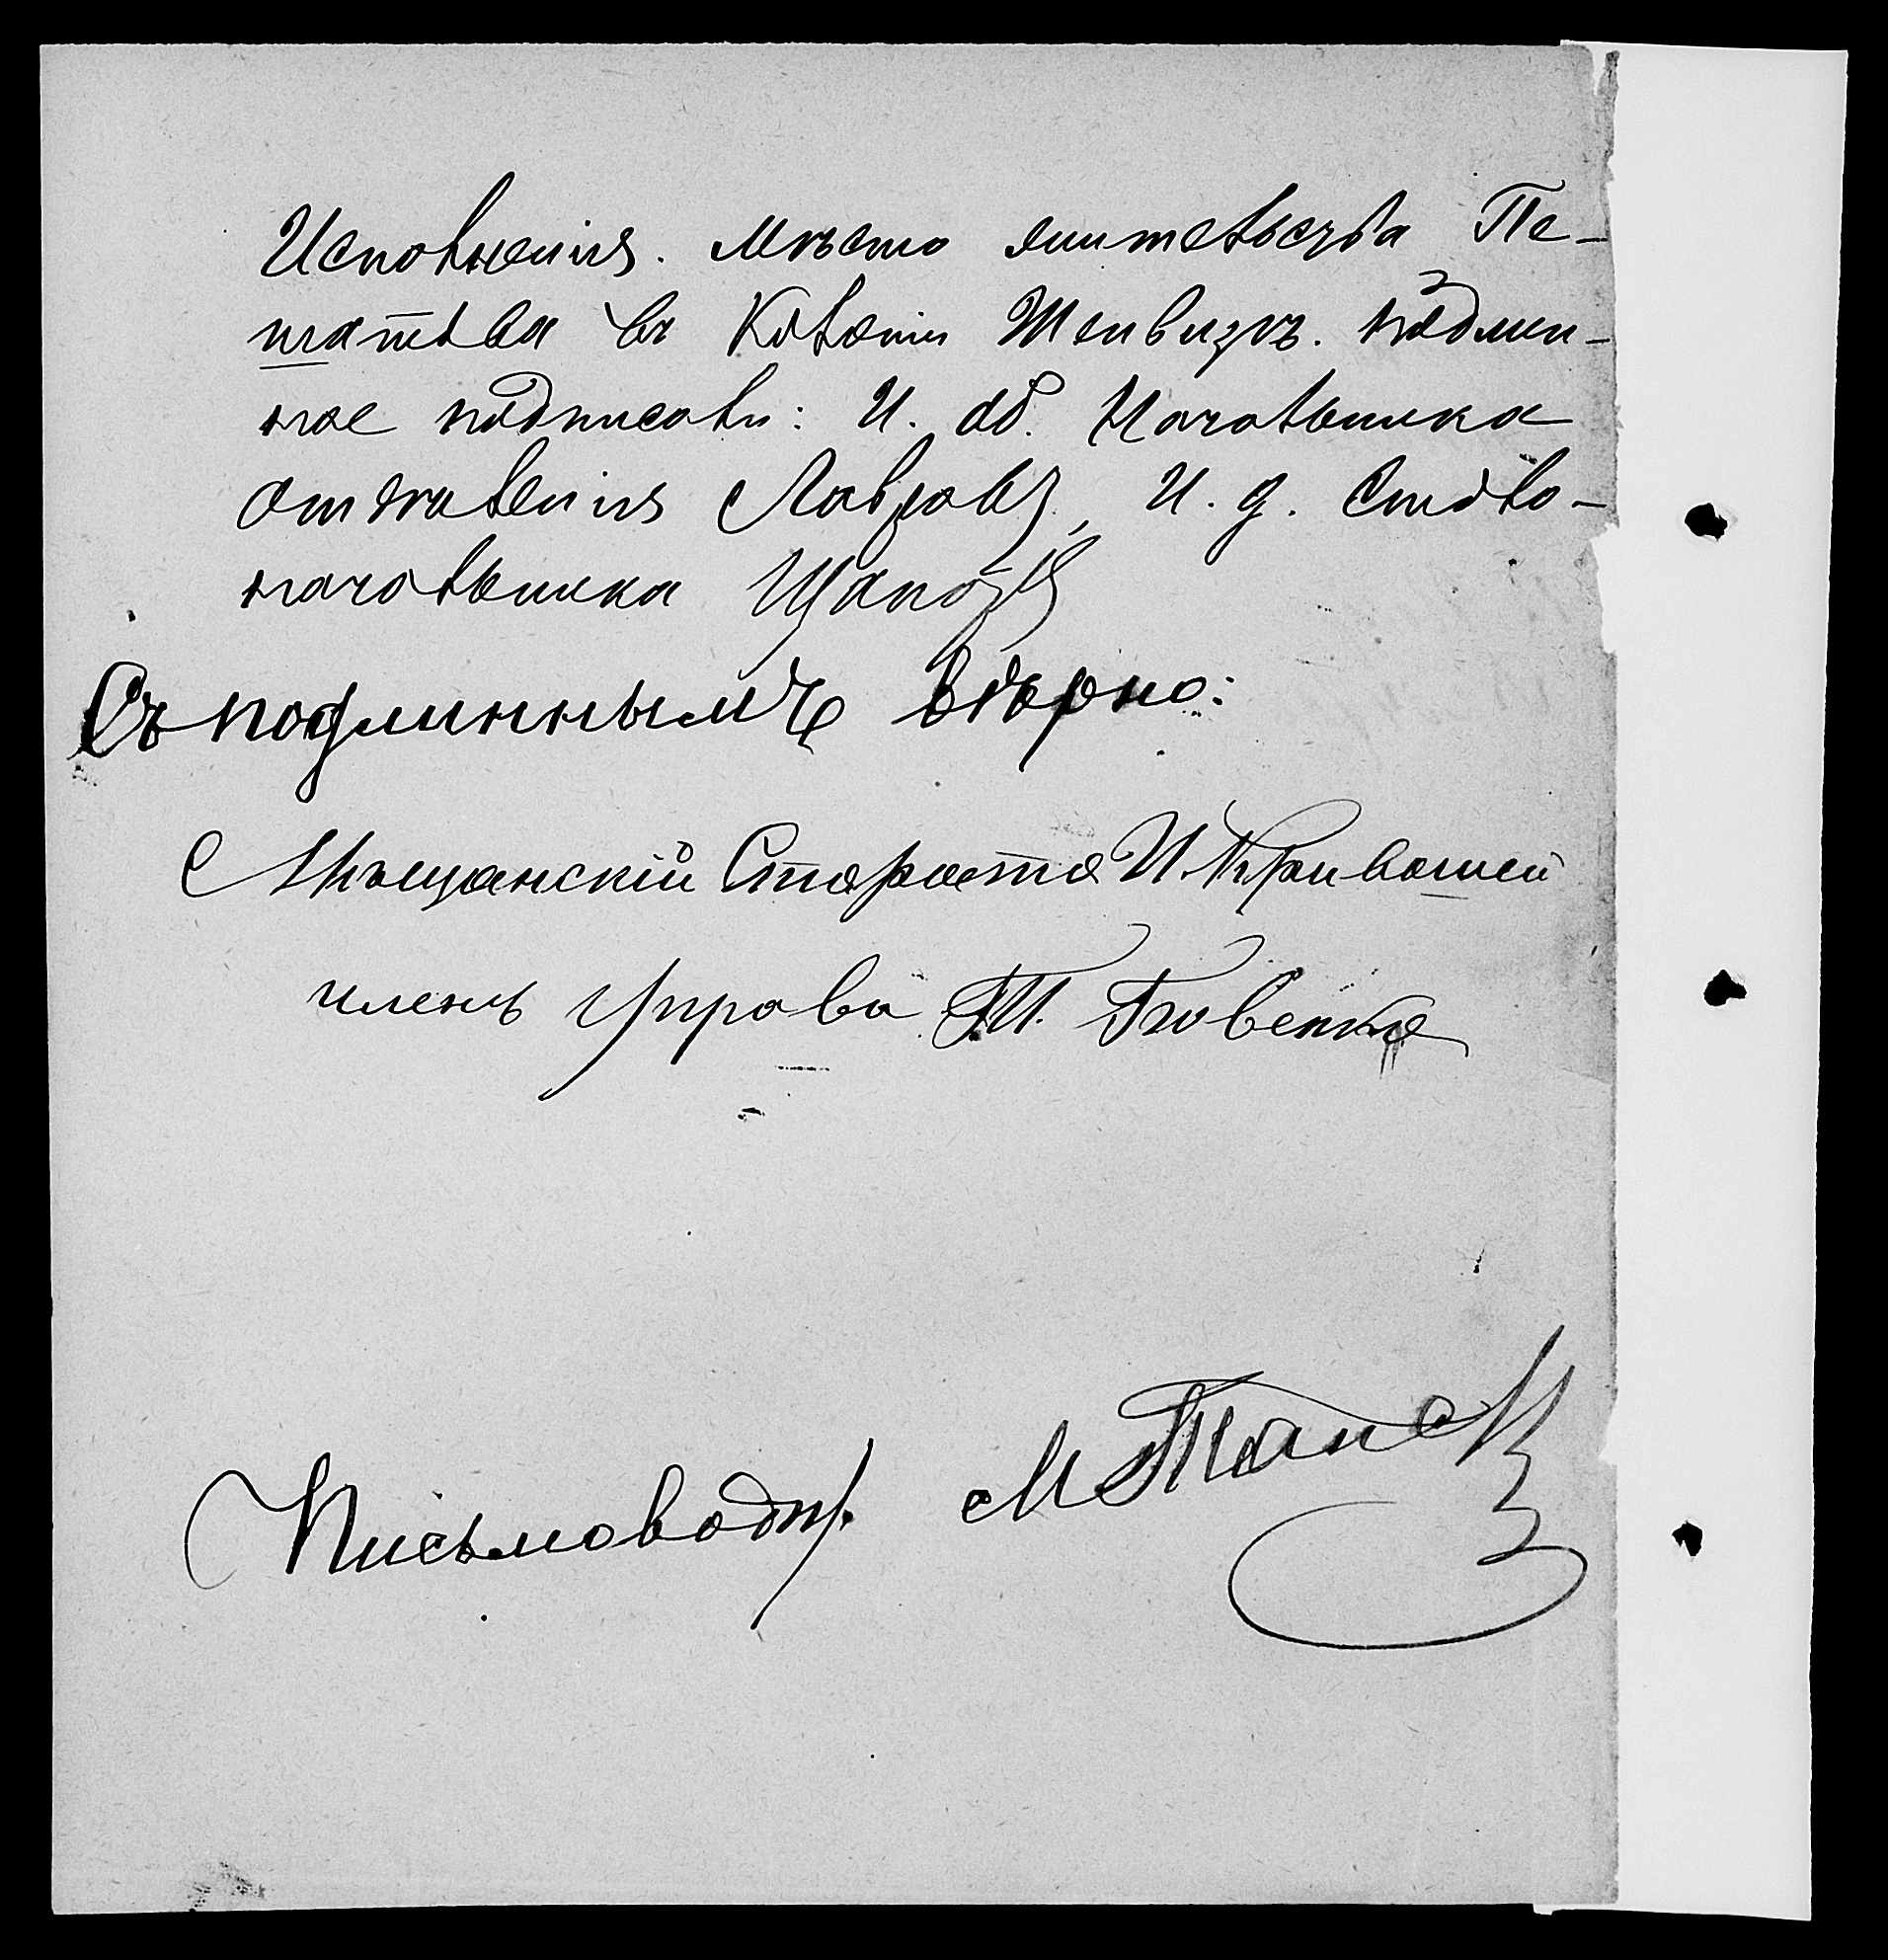 Исполненія. Мѣсто жительства Пе-
шательа въ Колоніи Шенвизъ. Подлин-
ное подписали: И. об. Начальника
отдѣленія Лавровъ, И. д. Столо-
начальника Щаповъ
Съ подлиннымъ вѣрно:
Мѣщанскій Староста И. Кривошей
членъ Управы М. Бровенко
Письмовод.